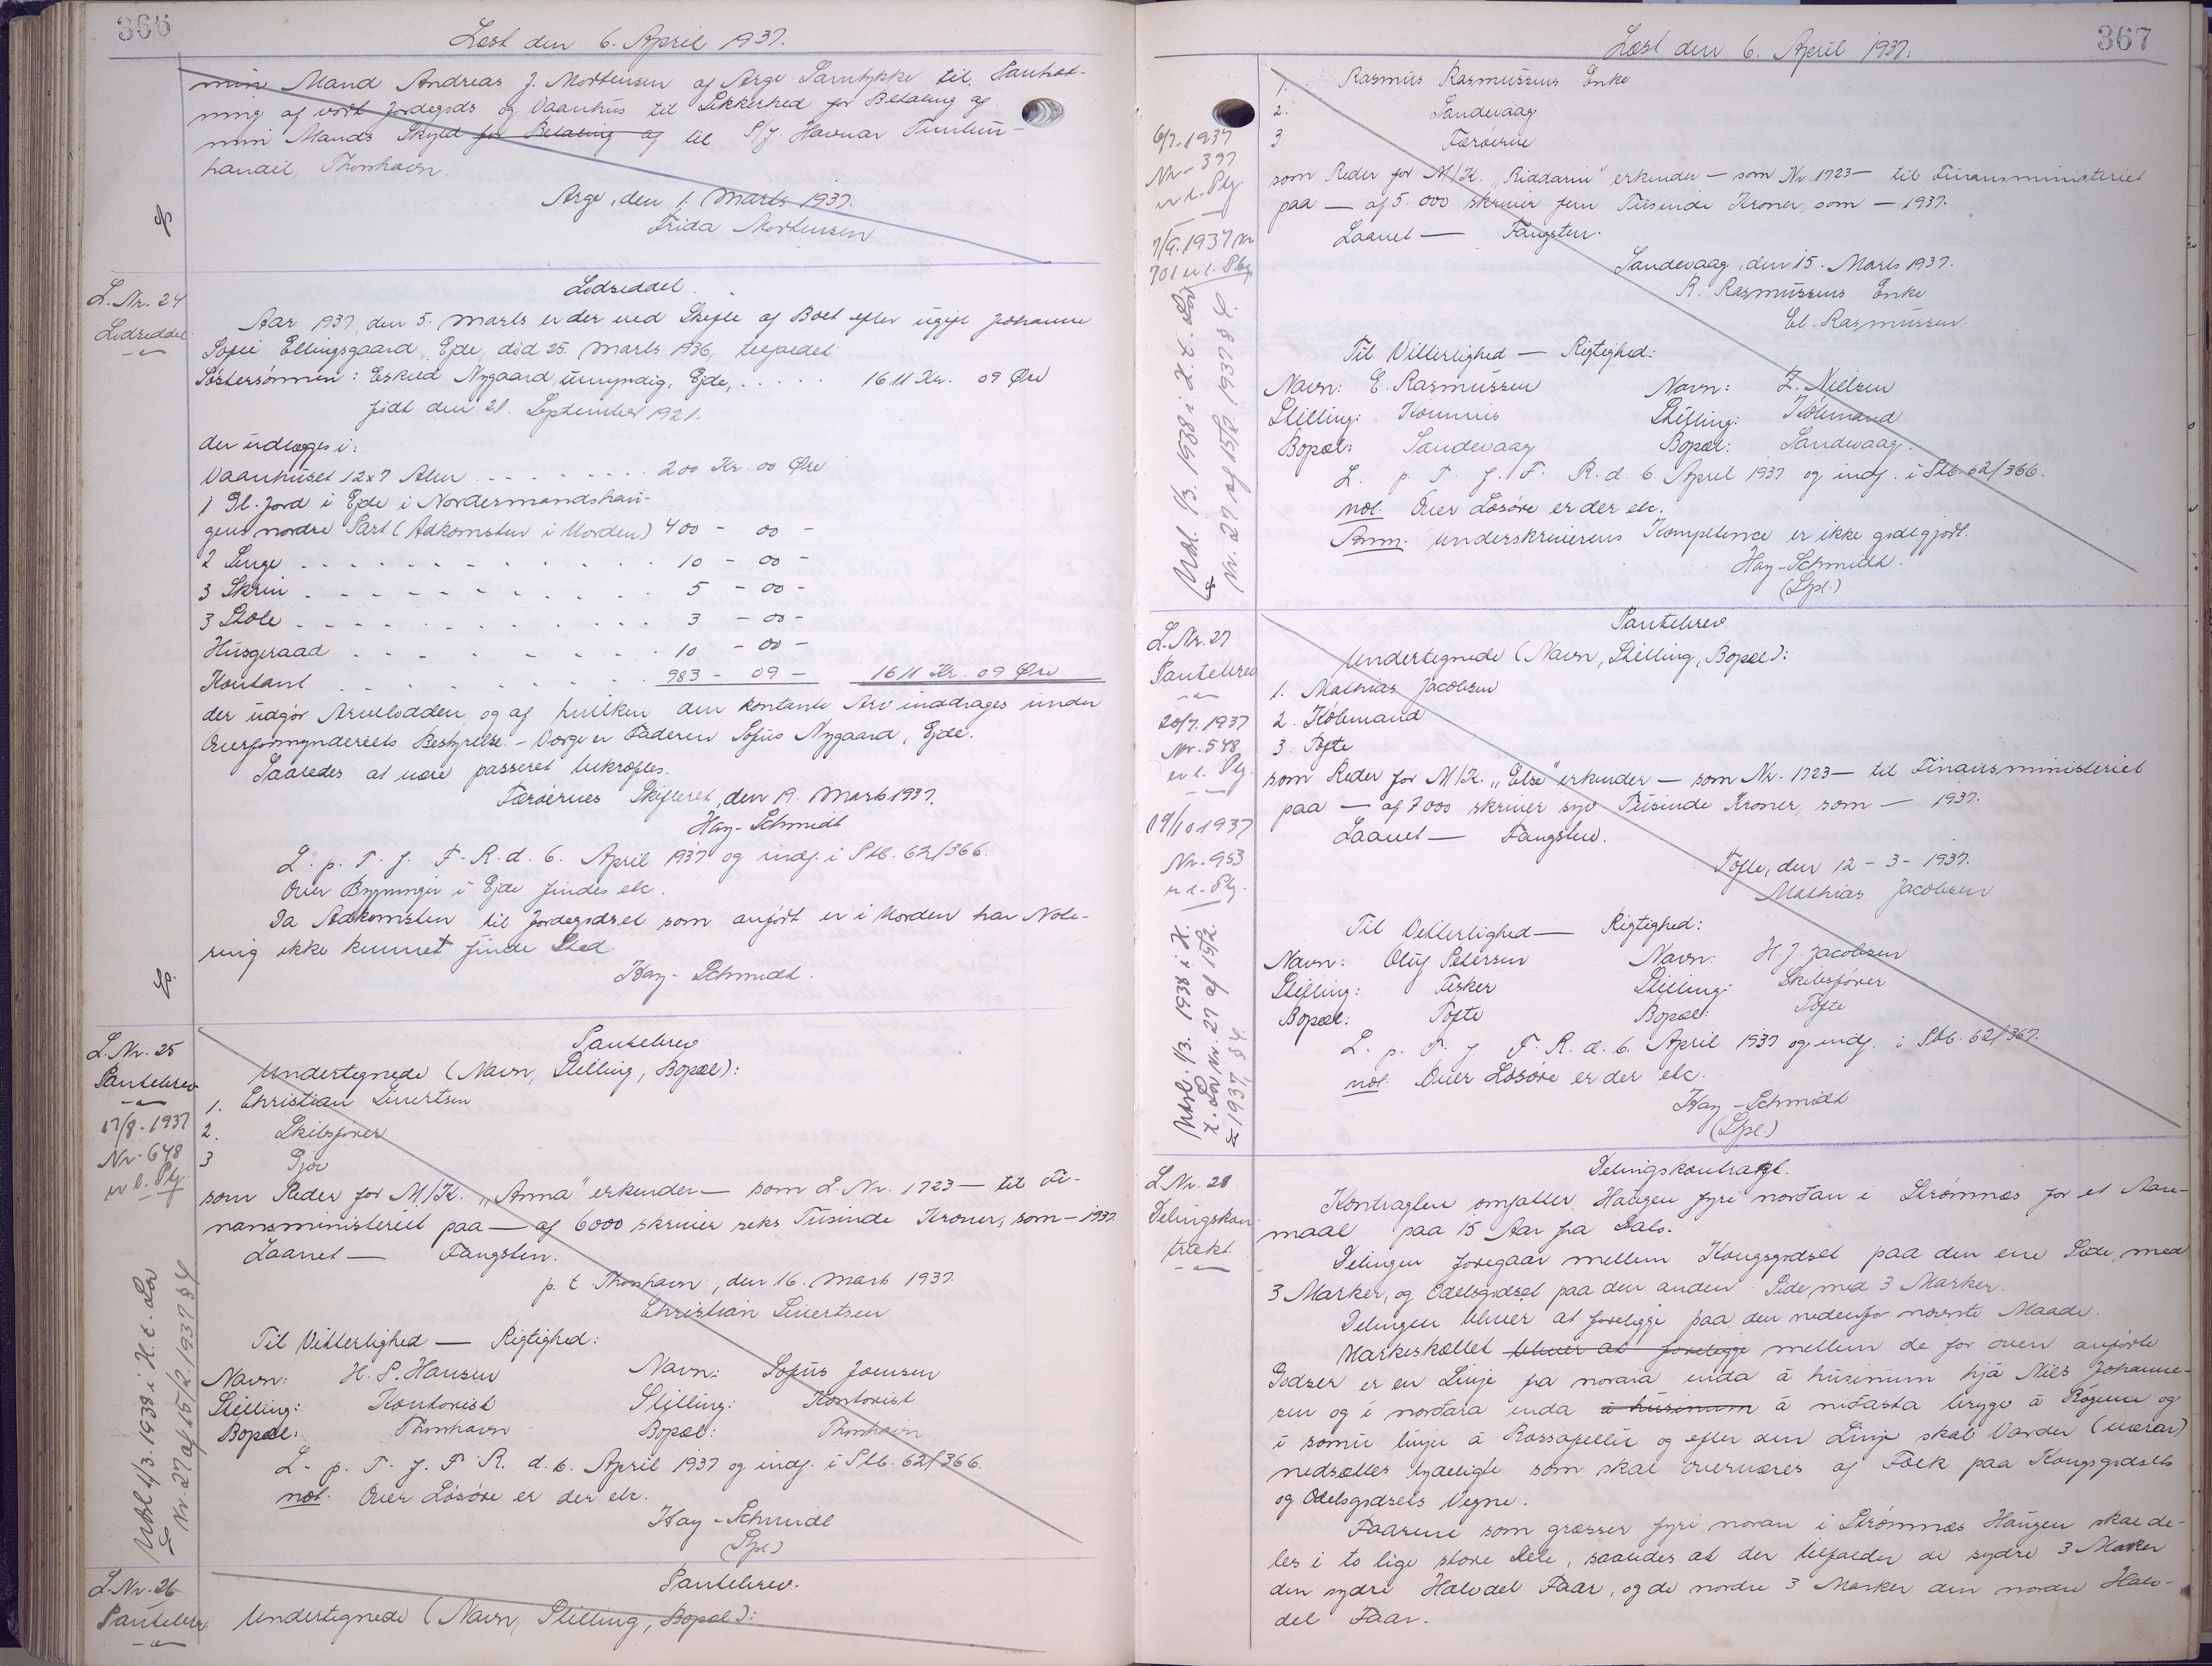 366
Læst den 6. April 1937.
min Mand Andreas J. Mortensen af Arge Samtykke til Pantsæt-
ning af vort Jordegods og Vaanhus til Sikkerhed for Betaling af
min Mands Skyld for Betaling af til P/f. Havnar Timbur-
handil, Thorshavn.
Arge, den 1. Marts 1937.
Frida Mortensen
L. Nr. 24
Lodseddel
Lodseddel.
Aar 1937, den 5. Marts er der ved Skifte af Boet efter ugift Johanne
Sofie Ellingsgaard, Ejde, död 25. Marts 1936, tilfaldet
Söstersönnen: Eskild Nygaard, umyndig, Ejde, . . . . . 1611 Kr. 09 Øre
født den 21. September 1921.
der udlægges i:
Vaanhuset 12x7 Alen . . . . . . . 200 Kr. 00 Øre
1 Gl. Jord i Ejde i Nordermandshau-
gens nordre Part (Adkomsten i Uorden) 400 - 00 -
2 Senge . . . . . . . . . . . . 10 - 00 -
3 Skrin . . . . . . . . . . . . 5 - 00 -
3 Stole . . . . . . . . . . . . 3 - 00 -
Husgeraad . . . . . . . . . . 10 - 00 -
Kontant . . . . . . . . . . 983 - 09 - 1611 Kr. 09 Øre
der udgör Arvelodden, og af hvilken den kontante Arv inddrages under
Overformynderiets Bestyrelse. - Værge er Faderen Sofus Nygaard, Ejde.
Saaledes at være passeret bekræftes.
Færøernes Skifteret, den 19. Marts 1937.
Hay-Schmidt
L. p. T. f. F. R. d. 6. April 1937 og indf. i Ptb. 62/366.
Over Bygninger i Ejde findes etc.
Da Adkomsten til Jordegodset som anført er i Uorden har Note-
ring ikke kunnet finde Sted.
Hay-Schmidt.
L. Nr. 25
Pantebrev
17/8. 1937
Nr. 648
er l. Ptg.
Udsl. 1/3. 1938 i H. t. Lov
Nr. 27 af 15/2. 1937 § 4
Pantebrev
Undertegnede (Navn, Stilling, Bopæl):
1. Christian Sivertsen
2. Skibsfører
3 Gjov
som Reder for M/K. "Anna" erkender — som L. Nr. 1723 — til Fi-
nansministeriet paa — af 6000 skriver seks Tusinde Kroner, som — 1937.
Laanet — Fangsten.
p. t. Thorshavn, den 16. Marts 1937.
Christian Sivertsen
Til Vitterlighed — Rigtighed:
Navn: H. P. Hansen Navn: Sofus Joensen
Stilling: Kontorist Stilling: Kontorist
Bopæl: Thorshavn Bopæl: Thorshavn
L. p. T. f. F. R. d. 6. April 1937 og indf. i Ptb. 62/366.
not. Over Lösöre er der etc.
Hay-Schmidt
(Spl.)
L. Nr. 26
Pantebrev
Pantebrev.
Undertegnede (Navn, Stilling, Bopæl):
367
Læst den 6. April 1937.
6/7. 1937
Nr. 397
er l. Ptg.
7/9. 1937 Nr.
701 er l. Ptg.
Udsl. 1/3. 1938 i H. t. Lov
Nr. 27 af 15/2. 1937 § 4.
1. Rasmus Rasmussens Enke
2. Sandevaag
3 Færøerne
som Reder for M/K. "Riddarin" erkender — som Nr. 1723 — til Finansministeriet
paa — af 5.000 skriver fem Tusinde Kroner, som — 1937.
Laanet — Fangsten.
Sandevaag, den 15. Marts 1937.
R. Rasmussens Enke
El. Rasmussen.
Til Vitterlighed — Rigtighed:
Navn: E. Rasmussen Navn: Z. Nielsen
Stilling: Kommis Stilling: Købmand
Bopæl: Sandevaag Bopæl: Sandevaag.
L. p. T. f. F. R. d. 6. April 1937 og indf. i Ptb. 62/366.
not. Over Lösöre er der etc.
Anm. underskriverens Kompetence er ikke godtgjort.
Hay-Schmidt.
(Spl.)
L. Nr. 27
Pantebrev
20/7. 1937
Nr. 548
er l. Ptg.
19/10 1937
Nr. 953
er l. Ptg.
Udsl. 1/3. 1938 i H.
t. Lov Nr. 27 af 15/2.
1937, § 4.
Pantebrev.
Undertegnede (Navn, Stilling, Bopæl):
1. Mathias Jacobsen
2. Købmand
3. Tofte
som Reder for M/K. "Else" erkender — som Nr. 1723 — til Finansministeriet
paa — af 7000 skriver syv Tusinde Kroner, som — 1937.
Laanet — Fangsten.
Tofte, den 12 - 3 - 1937.
Mathias Jacobsen
Til Vitterlighed — Rigtighed:
Navn: Oluf Petersen Navn: H. J. Jacobsen
Stilling: Fisker Stilling: Skibsfører
Bopæl: Tofte Bopæl: Tofte
L. p. T. f. F. R. d. 6. April 1937 og indf. i Ptb. 62/367.
not. Over Lösöre er der etc.
Hay-Schmidt
(Spl.)
L. Nr. 28
Delingskon
trakt.
Delingskontragt.
Kontragten omfatter Haugen fyri norðan i Strømnæs for et Aare-
maal paa 15 Aar fra Dato.
Delingen foregaar mellem Kongsgodset paa den ene Side, med
3 Marker, og Odelsgodset paa den anden Side med 3 Marker.
Delingen bliver at foreligge paa den nedenfor nævnte Maade.
Markeskællet bliver at foreligge mellem de for oven anførte
Godser er en Linje fra norara enda á húsinum hjá Niels Johanne-
sen og i norðara enda á húsinum á niðasta brygv á Røgum og
i somu linju á Rossafelli og efter den Linje skal Varder (varar)
nedsættes tydeligt som skal overværes af Folk paa Kongsgodsets
og Odelsgodsets Vegne.
Faarene som græsser fyri noran i Strømnæs Haugen skal de-
les i to lige store Dele, saaledes at der tilfalder de sydre 3 Marker
den sydre Halvdel Faar, og de nordre 3 Marker den nordre Halv-
del Faar.